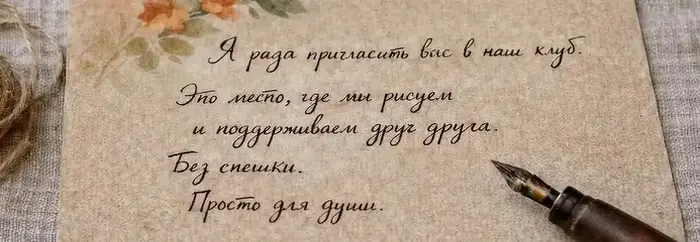 Я рада пригласить вас в наш клуб.
Это место, где мы рисуем
и поддерживаем друг друга.
Без спешки.
Просто для души.